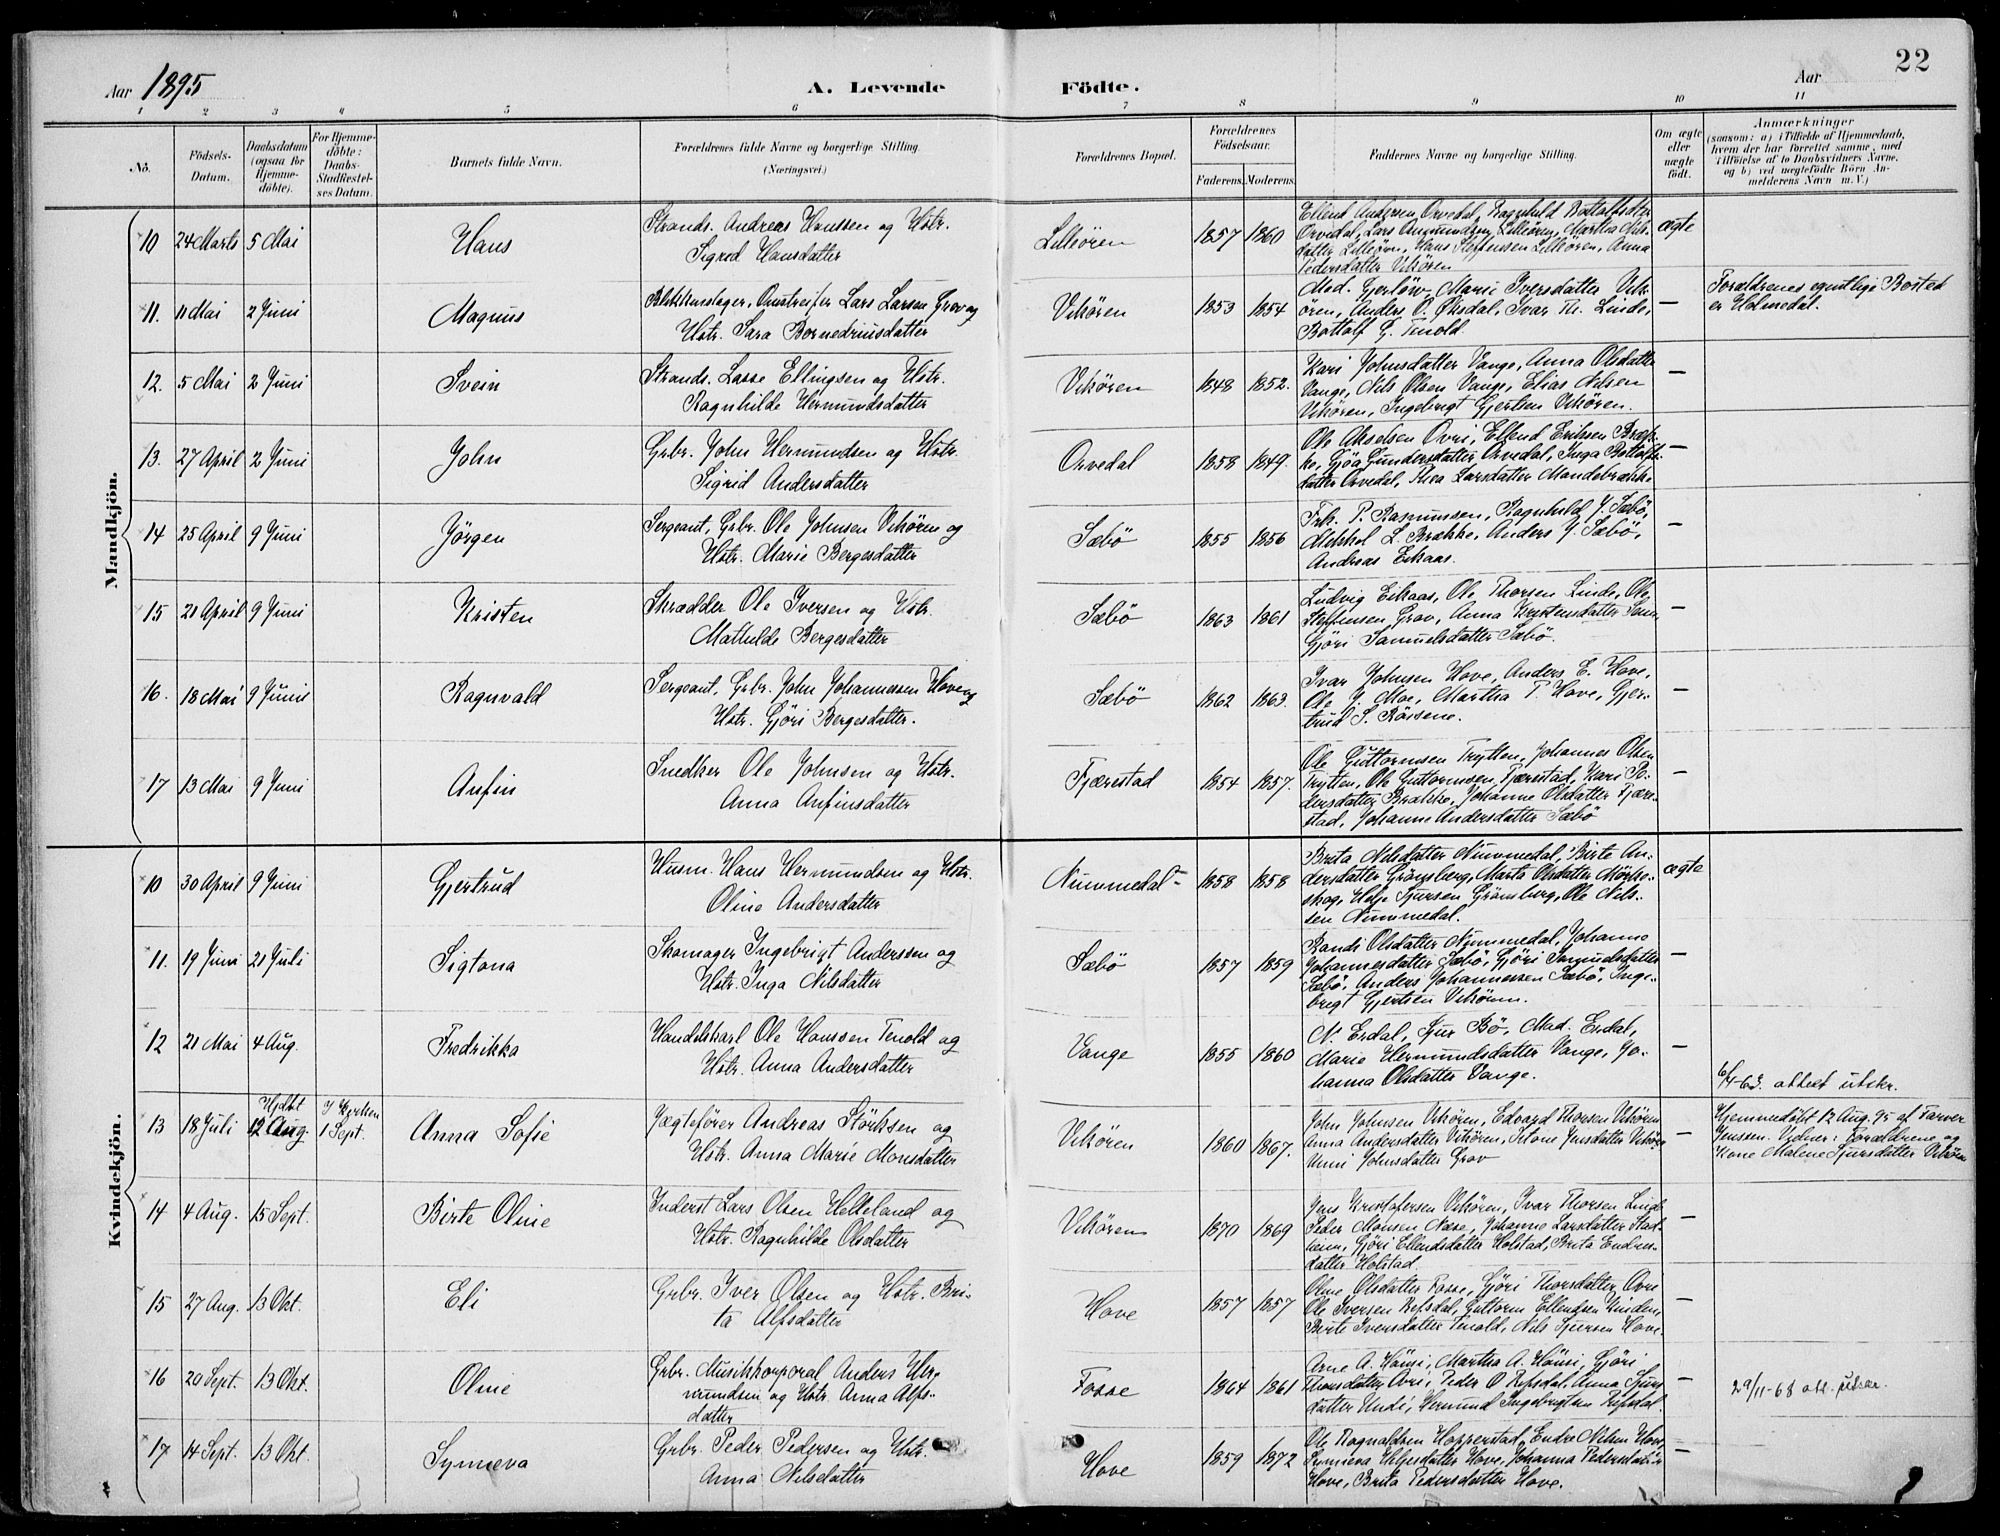 22
Aar 1895
A. Levende
Födte.
Aar
1 2 3 4 5 6 7 8 9 10 11
No.
Födsels-Datum.
Daabsdatum (ogsaa for Hjemme-döbte).
For Hjemme-döbte: Daabs-Stadfæstelses Datum.
Barnets fulde Navn.
Forældrenes fulde Navne og borgerlige Stilling. (Næringsvei.)
Forældrenes Bopæl.
Forældrenes Födselsaar.
Faderens. Moderens.
Faddernes Navne og borgerlige Stilling.
Om ægte eller uægte födt.
Anmærkninger (saasom: a) i Tilfælde af Hjemmedaab, hvem der har forrettet samme, med Tilföielse af to Daabsvidners Navne, og b) ved uægtefödte Börn Anmelderens Navn m. V.)
Mandkjön.
10 24 Marts 5 Mai Hans
Strands. Andreas Hanssen og Hstr.
Sigrid Hansdatter
Lilleören 1857 1860
Ellend Andersen Orvedal, Ragnhild Bottolfsdtr
Orvedal, Lars Amundsen Lilleören, Martha Nils-
datter Lilleören, Hans Steffensen Lilleören, Anna
Pedersdatter Vikören
ægte
11. 11 Mai 2 Juni Magnus
Blikkenslager, Omstreifer Lars Larsen Grov og
Hstr. Sara Bornedriusdatter
Vikören 1853 1854
Mad. Gerlöw, Marie Iversdatter Vik-
ören, Anders O. Öksdal, Ivar Th. Linde,
Bottolf G. Tenold
—
Forældrenes egentlige Bosted
er Holmedal.
12. 5 Mai 2 Juni Svein
Strands. Lasse Ellingsen og Hstr.
Ragnhilde Hermundsdatter
Vikören 1848 1852.
Kari Johnsdatter Vange, Anna Olsdatter
Vange, Nils Olsen Vange, Elias Nilsen
Vikören, Ingebrigt Gjertsen Vikören.
—
13. 27 April 2 Juni John
Grbr. John Hermundsen og Hstr.
Sigrid Andersdatter
Orvedal 1858 1849.
Ole Akselsen Ovri, Ellend Eriksen Bræk-
ke, Gjöa Gundersdatter Orvedal, Inga Bottolfs-
datter Orvedal, Thea Larsdatter Mandebrække
—
14 25 April 9 Juni Jörgen
Sergeant, Grbr. Ole Johnsen Vikören og
Hstr. Marie Bergesdatter
Sæbö 1855 1856
Frk. P. Rasmussen, Ragnhild J. Sæbö,
Mikkel L. Brække, Anders J. Sæbö,
Andreas Eikaas.
—
15 21 April 9 Juni Kristen
Skrædder Ole Iversen og Hstr.
Mathilde Bergesdatter
Sæbö 1863 1861
Ludvig Eikaas, Ole Thorsen Linde, Ole
Steffensen Grov, Anna
Gjöri Samuelsdatter Sæbö.
—
16. 18 Mai 9 Juni Ragnvald
Sergeant, Grbr. John Johannessen Hove og
Hstr. Gjöri Bergesdatter.
Sæbö 1862 1863.
Ivar Johnsen Hove, Anders E. Hove,
Ole J. Moe, Martha P. Hove, Gjer-
trud S. Röysene.
—
17 13 Mai 9 Juni Anfin
Snedker Ole Johnsen og Hstr.
Anna Anfinsdatter
Fjærestad 1854 1857.
Ole Guttormsen Trytten, Johannes Olsen
Trytten, Ole Guttormsen, Fjærestad, Kari Pe-
dersdatter Brække, Johanne Olsdatter Fjære-
stad, Johanne Andersdatter Sæbö
—
Kvindekjön.
10 30 April 9 Juni Gjertrud
Husm. Hans Hermundsen og Hstr.
Oline Andersdatter
Nummedal 1858 1858
Brita Nilsdatter Nummedal, Birte An-
dersdatter Grönsberg, Marta Olsdatter Mörke-
skog, Helje Sjursen Grönsberg, Ole Nils-
sen Nummedal.
ægte
11. 19 Juni 21 Juli Sigtona
Skomager Ingebrigt Anderssen og
Hstr. Inga Nilsdatter
Sæbö 1857 1859
Randi Olsdatter Nummedal, Johanne
Johannesdatter Sæbö, Gjöri Samuelsdatter
Sæbö, Anders Johannessen Sæbö, Inge-
brigt Gjertsen Vikören.
—
12 21 Mai 4 Aug. Fredrikka
Handelskarl Ole Hanssen Tenold og
Hstr. Anna Andersdatter
Vange 1855 1860
N. Erdal, Sjur Bö, Mad. Erdal,
Marie Hermundsdatter Vange, Jo-
hanna Olsdatter Vange.
—
6/4-63. attest utskr.
13 18 Juli Hjdbt 12 Aug. I Kirken 1 Sept. Anna Sofie
Jægtefører Andreas Störksen og
Hstr. Anna Marie Monsdatter
Vikören 1860 1867.
John Johnsen Vikören, Edvard Thorsen Vikören
Anna Andersdatter Vikören, Silone Jensdatter Vikören
Unni Johnsdatter Grov
Hjemmedöbt 12 Aug. 95 af Farver
Jenssen. Vidner: Forældrene og
Kone Malene Sjursdatter Vikören
14 4 Aug. 15 Sept. Birte Oline
Inderst Lars Olsen Helleland og
Hstr. Ragnhilde Olsdatter
Vikören 1870 1869
Jens Kristofersen Vikören, Ivar Thorsen Linde
Peder Monsen Næse, Johanne Larsdatter Stad-
heim, Gjöri Ellendsdatter Holstad, Brita Endres-
datter Holstad.
—
15 27 Aug. 13 Okt. Eli
Grbr. Iver Olsen og Hstr. Bri-
ta Alfsdatter
Hove 1857 1857
Oline Olsdatter Fosse, Gjöri Thorsdatter Ovri
Ole Iversen Refsdal, Guttorm Ellendsen Linden,
Birte Iversdatter Tenold, Nils Sjursen Hove.
—
16 20 Sept. 13 Okt. Oline
Grbr. Musikkorporal Anders Her-
mundsen og Hstr. Anna Alfs-
datter
Fosse 1864 1861
Arne A. Hönsi, Martha A. Hönsi, Gjöri
Thorsdatter Ovri, Peder O Refsdal, Anna Sjurs-
datter Undi, Hermund Ingebrigtsen Refsdal.
—
29/11-68 att. utskr.
17 14 Sept. 13 Okt. Synneva
Grbr. Peder Pedersen og Hstr.
Anna Nilsdatter
Hove 1859 1872
Ole Ragnaldsen Hopperstad, Endre Nilsen Hove,
Synneva Heljesdatter Hove, Johanna Pedersdatter
Hove, Brita Pedersdatter Hove.
—